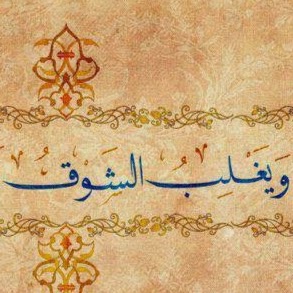 وَيَغْلِبُ الشَّوْقُ